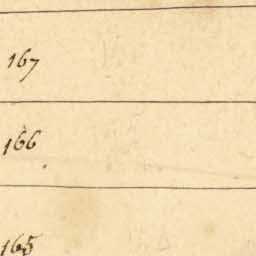 167
166
165